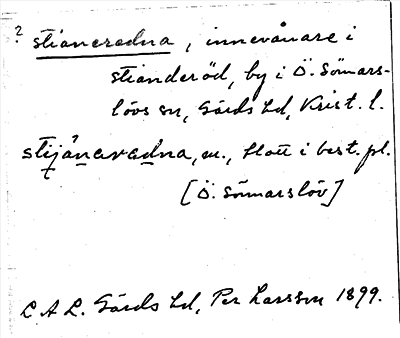 ? stianeredna, innevånare i
stianderöd, by i Ö. Sönnars-
lövs sn, Gärds hd, Krist. l.
stijånaredna, m., blott i best. pl.
[Ö. Sönnarslöv]
L.A.L. Gärds hd, Per Larsson 1899.